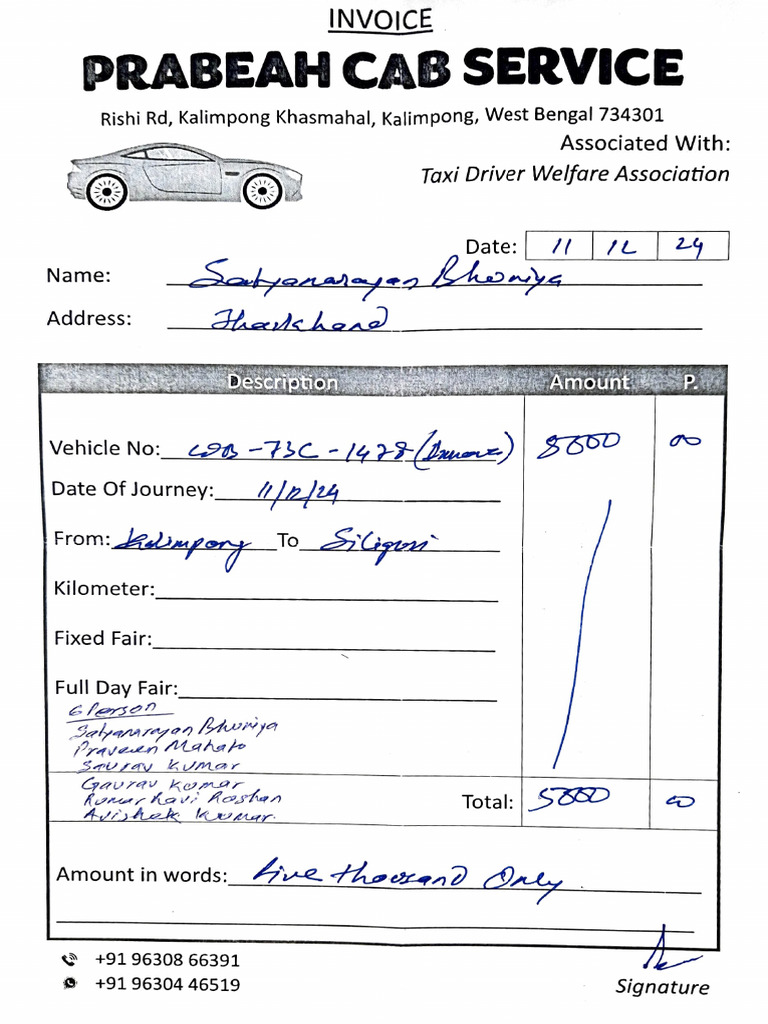 INVOICE
PRABEAH CAB SERVICE
Rishi Rd, Kalimpong Khasmahal, Kalimpong, West Bengal 734301
Associated With:
Taxi Driver Welfare Association
Date: 11 12 24
Name: Satyanarayan Bhuniya
Address: Jharkhand
Description Amount P.
Vehicle No: WB-73C-1478 (Innova) 5000 00
Date Of Journey: 11/12/24
From: Kalimpong To Siliguri
Kilometer:
Fixed Fair:
Full Day Fair:
6 Person
Satyanarayan Bhuniya
Praveen Mahato
Saurav Kumar
Gaurav Kumar
Kumar Ravi Roshan
Avishek Kumar.
Total: 5000 00
Amount in words: Five thousand Only.
+91 96308 66391
+91 96304 46519
Signature